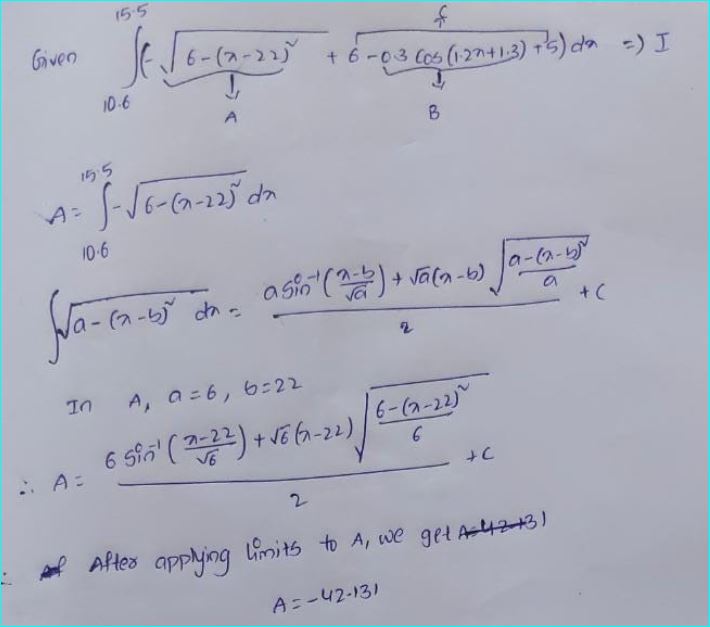 Given ∫ 10.6 15.5 (-√6-(x-22)² + 6-0.3 Cos(1.2x+1.3)+5) dx => I
f
A
B
A= ∫ 10.6 15.5 -√6-(x-22)² dx
∫√a-(x-b)² dx = a sin⁻¹((x-b)/√a) + √a(x-b) √((a-(x-b)²)/a) / 2 + C
In A, a=6, b=22
∴ A= 6 sin⁻¹((x-22)/√6) + √6(x-22) √((6-(x-22)²)/6) / 2 + C
After applying limits to A, we get
A=-42.131